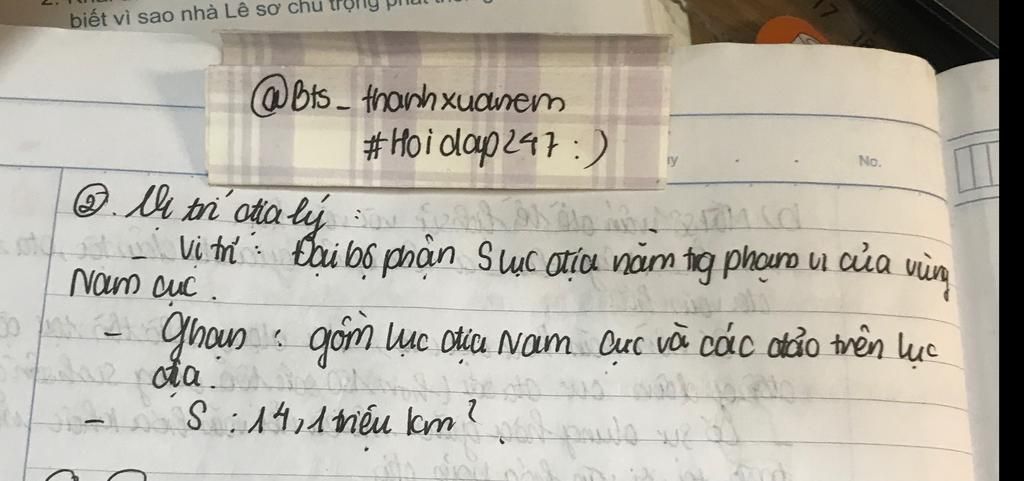 biết vì sao nhà Lê sơ chú trọng phát
@Bts_thanhxuanem
#Hoidap247 :)
No.
②. Vị trí địa lý :
– Vị trí : Đại bộ phận S lục địa nằm trg phạm vi của vùng
Nam cực.
– Ghạn : gồm lục địa Nam cực và các đảo trên lục
địa.
– S : 14,1 triệu km²